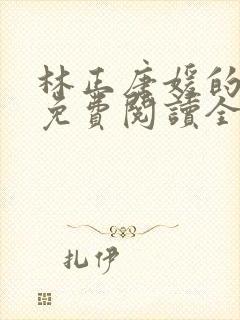 林正唐媛的
免費閱讀全
扎伊